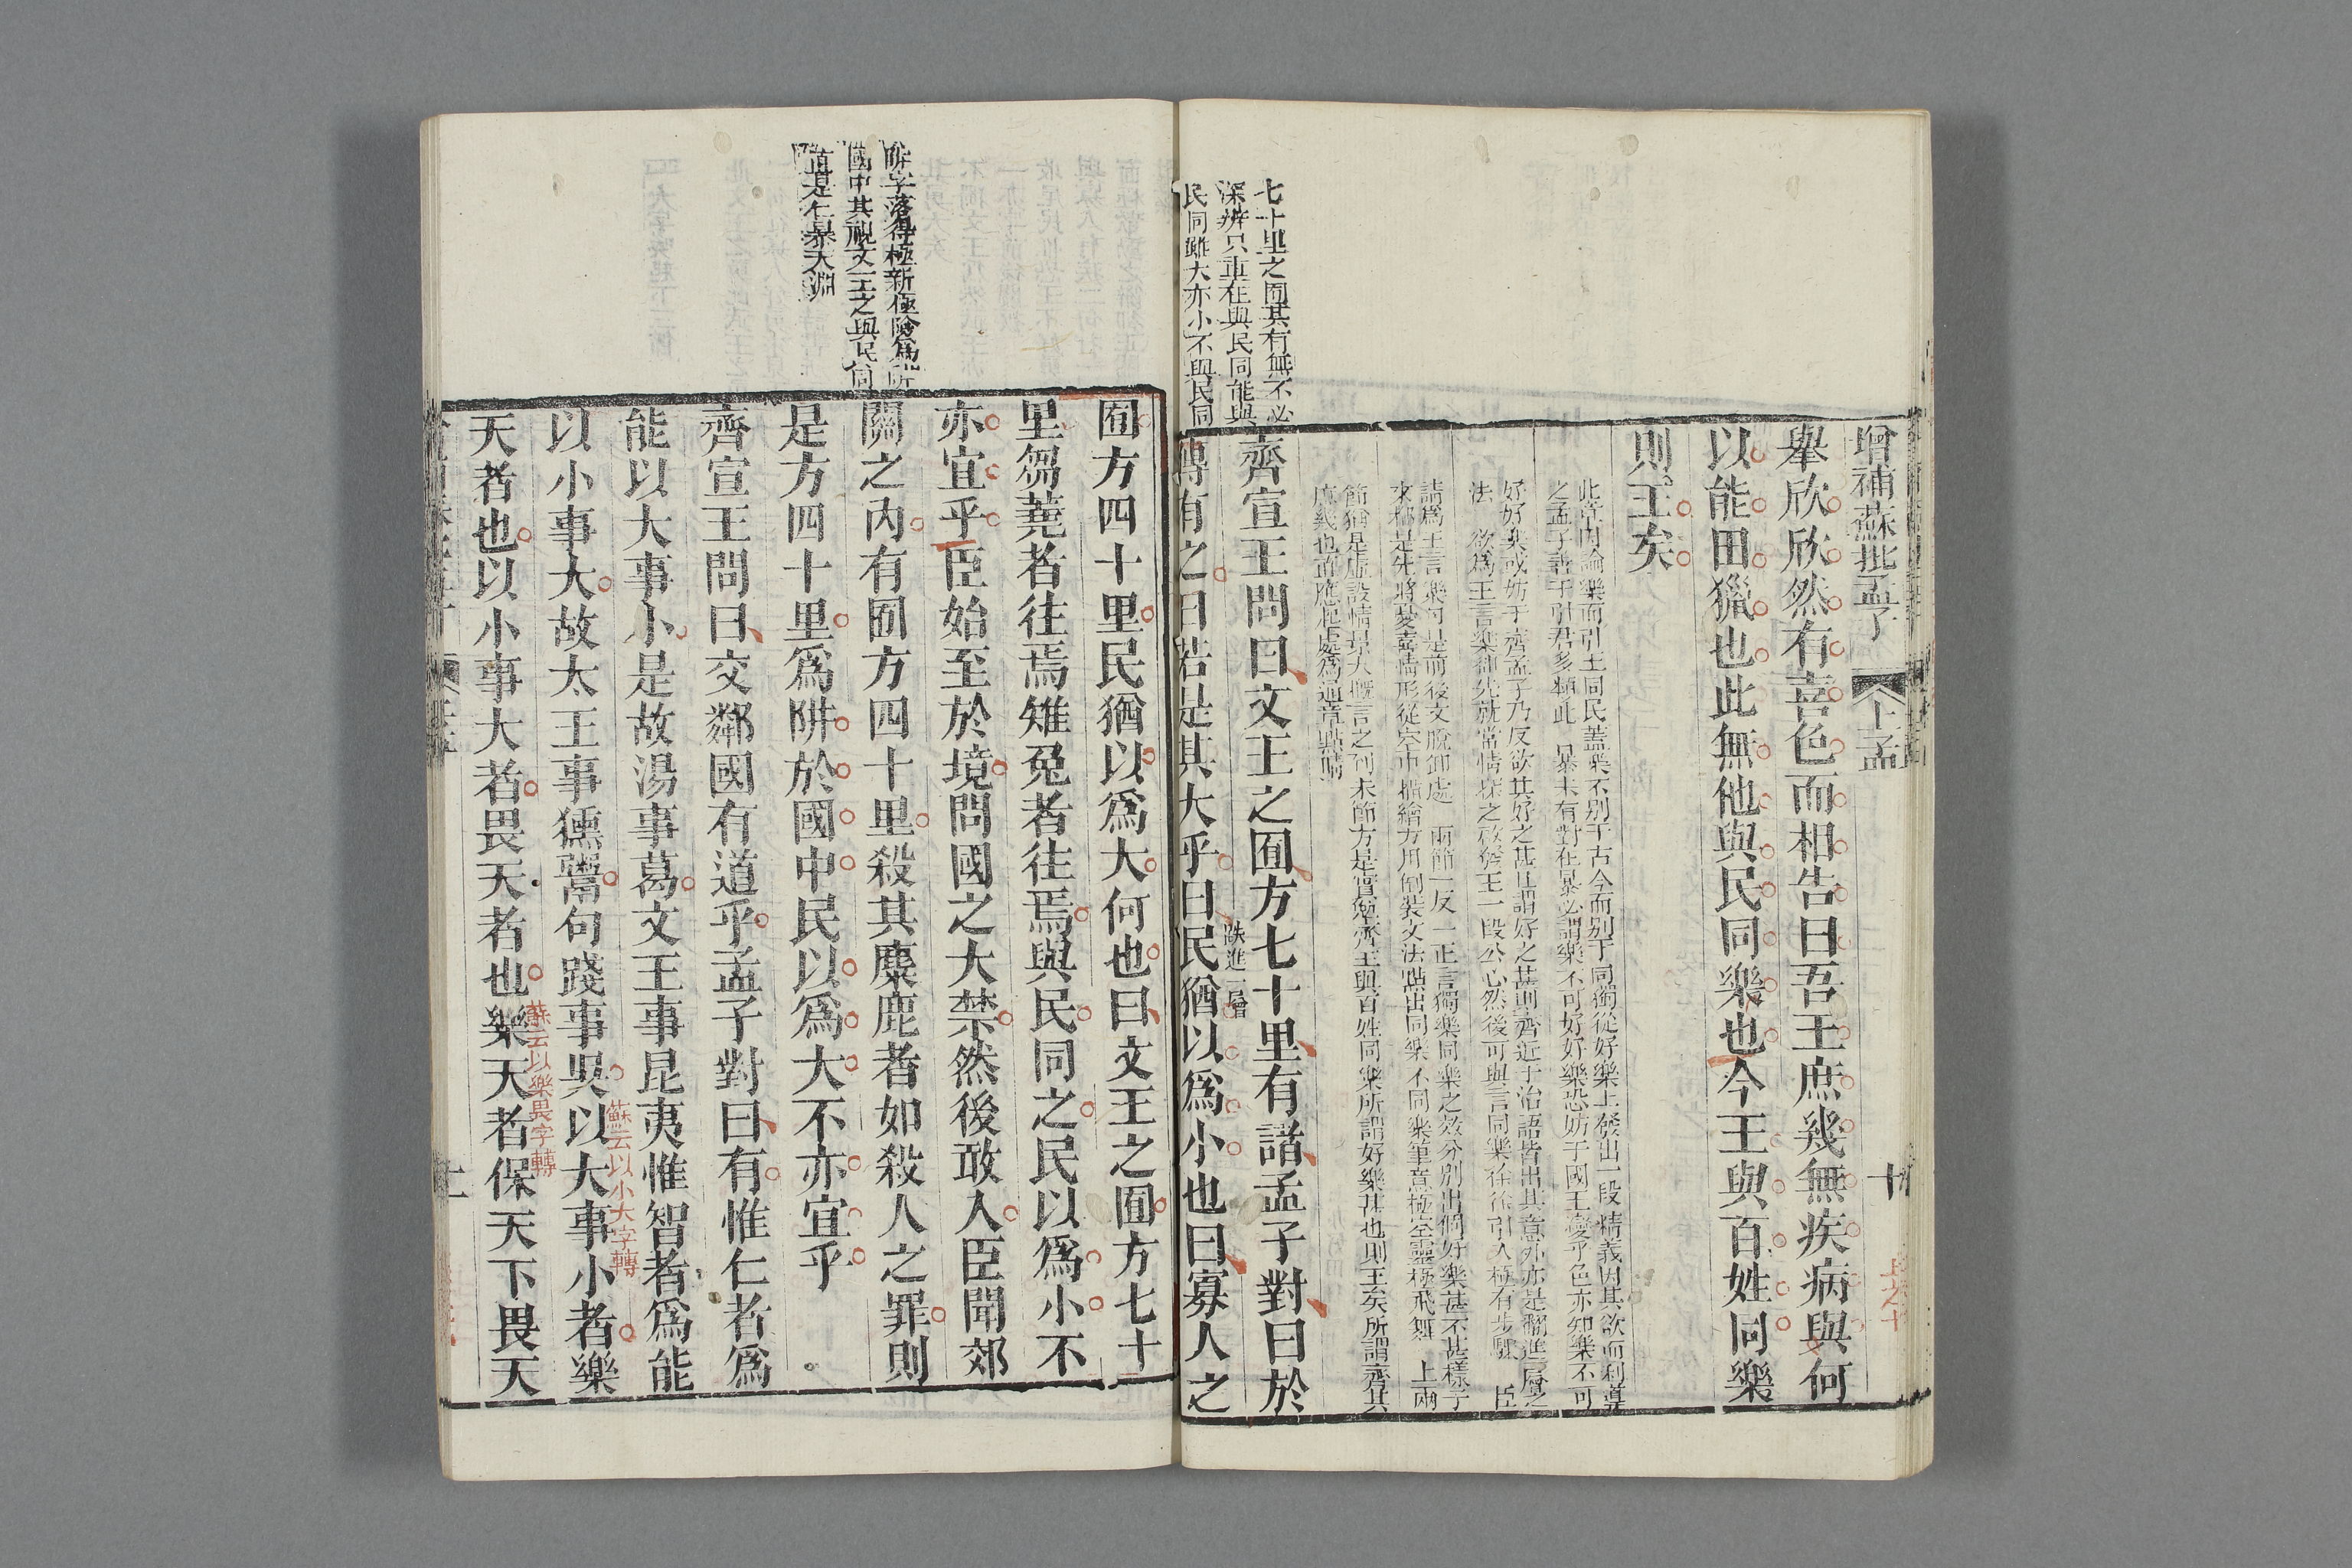 增補蘇批孟子
上孟
十
上之十
舉欣欣然有喜色而相告曰吾王庶幾無疾病與何
以能田獵也此無他與民同樂也今王與百姓同樂
則王矣
此章因論樂而引王同民蓋樂不别于古今而别于同獨從好樂上發出一段精義因其欲而利導
之孟子善于引君多類此 暴未有對在暴必謂樂不可好好樂恐妨于國王變乎色亦知樂不可
好好樂或妨于齊孟子乃反欲其好之甚且謂好之甚則齊近于治語皆出其意外亦是翻進一層之
法 欲為王言樂却先就常情探之故發王一段公心然後可與言同樂徐徐引入極有步驟 臣
請為王言樂句是前後文脫卸處 兩節一反一正言獨樂同樂之效分别出個好樂甚不甚樣子
來都是先將憂喜情形從空中描繪方用倒裝文法點出同樂不同樂筆意極空靈極飛舞 上兩
節猶是虛設情景大概言之到末節方是實勉齊王與百姓同樂所謂好樂甚也則王矣所謂齊其
庶幾也首應起處為通章點睛
七十里之囿其有無不必
深辨只重在與民同能與
民同雖大亦小不與民同
齊宣王問曰文王之囿方七十里有諸孟子對曰於
傳有之曰若是其大乎曰民猶以爲小也曰寡人之
跌進一層
囿方四十里民猶以爲大何也曰文王之囿方七十
里芻蕘者往焉雉兔者往焉與民同之民以爲小不
亦宜乎臣始至於境問國之大禁然後敢入臣聞郊
關之內有囿方四十里殺其麋鹿者如殺人之罪則
是方四十里爲阱於國中民以爲大不亦宜乎
阱字落得極新極險為阱
國中其視文王之與民同
直是仁暴天淵
齊宣王問曰交鄰國有道乎孟子對曰有惟仁者爲
能以大事小是故湯事葛文王事昆夷惟智者爲能
以小事大故太王事獯鬻句踐事吳以大事小者樂
蘇云以小大字轉
天者也以小事大者畏天者也樂天者保天下畏天
蘇云以樂畏字轉